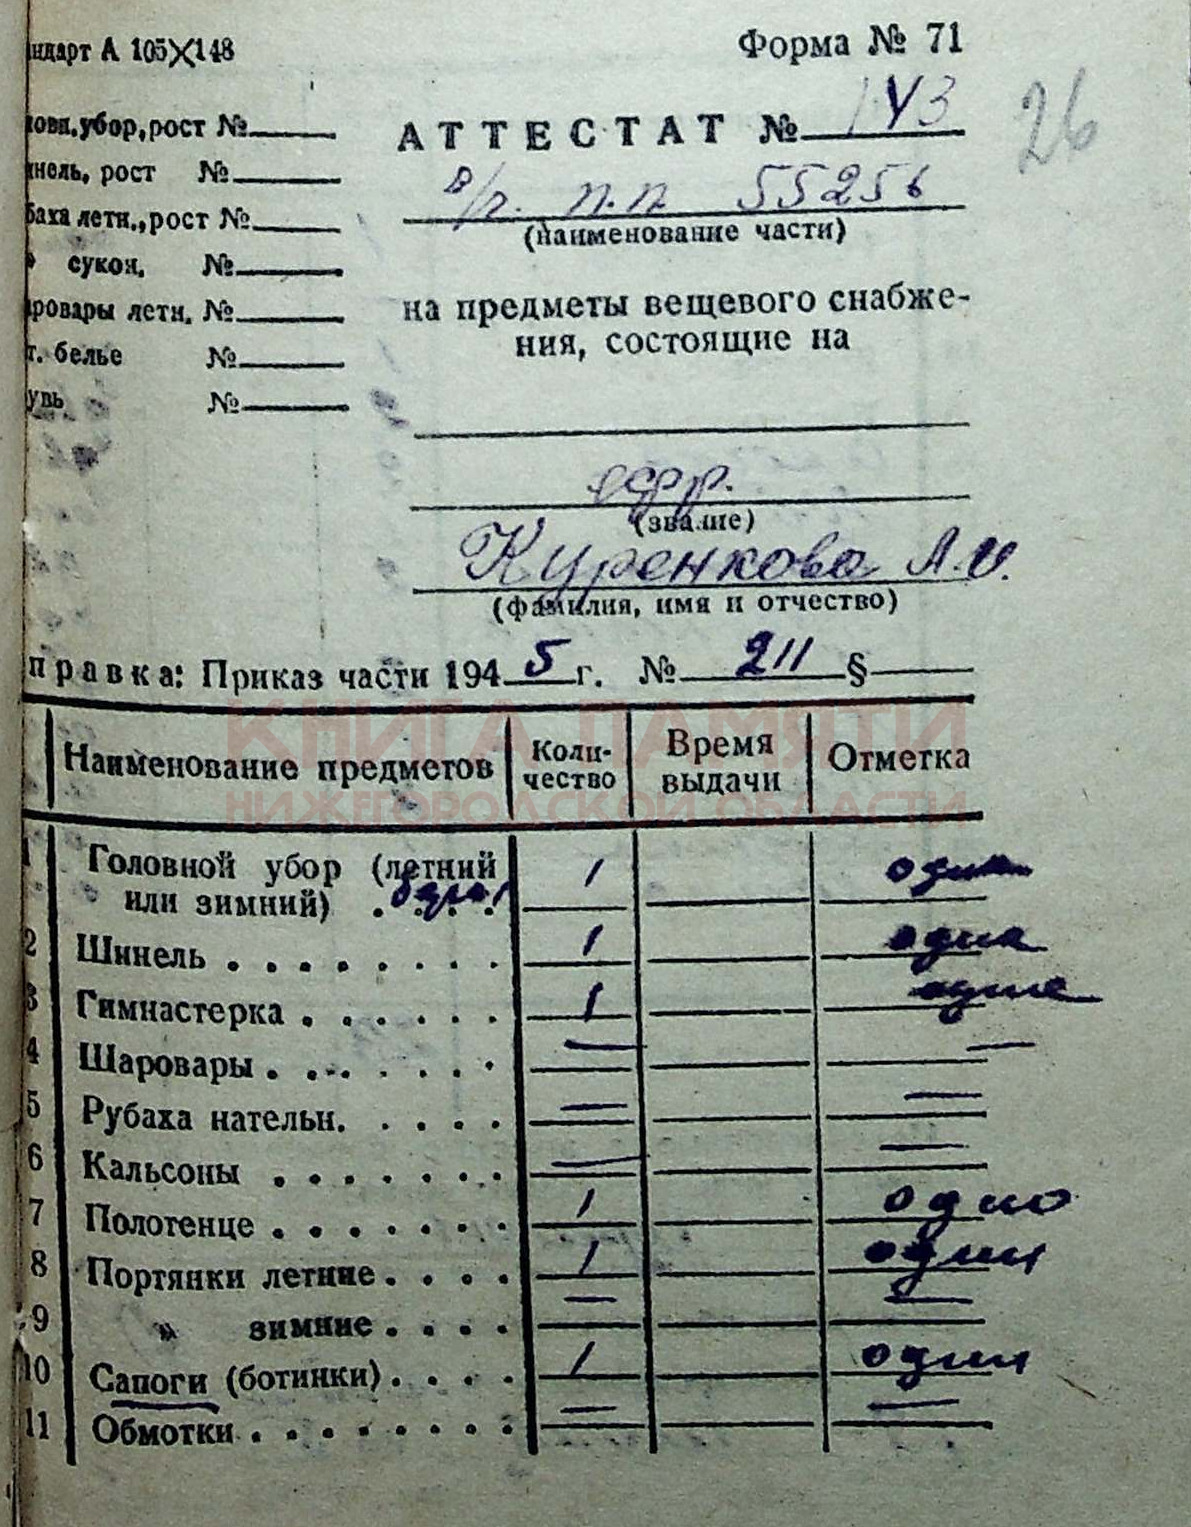 ндарт А 105X148
Форма № 71
26
ловн.убор,рост №
инель, рост №
баха летн.,рост №
» сукон. №
ровары летн. №
т. белье №
увь №
АТТЕСТАТ № 143
в/ч. п.п 55256
(наименование части)
на предметы вещевого снабже-
ния, состоящие на
ефр.
(звание)
Куренкова А.И.
(фамилия, имя и отчество)
правка: Приказ части 1945 г. № 211 §
КНИГА ПАМЯТИ
НИЖЕГОРОДСКОЙ ОБЛАСТИ
Наименование предметов Коли- Время Отметка
чество выдачи
1 Головной убор (летний 1 один
или зимний)
2 Шинель 1 одна
3 Гимнастерка 1 одна
4 Шаровары — —
5 Рубаха нательн. — —
6 Кальсоны — —
7 Полотенце 1 одно
8 Портянки летние 1 один
9 » зимние — —
10 Сапоги (ботинки) 1 один
11 Обмотки — —